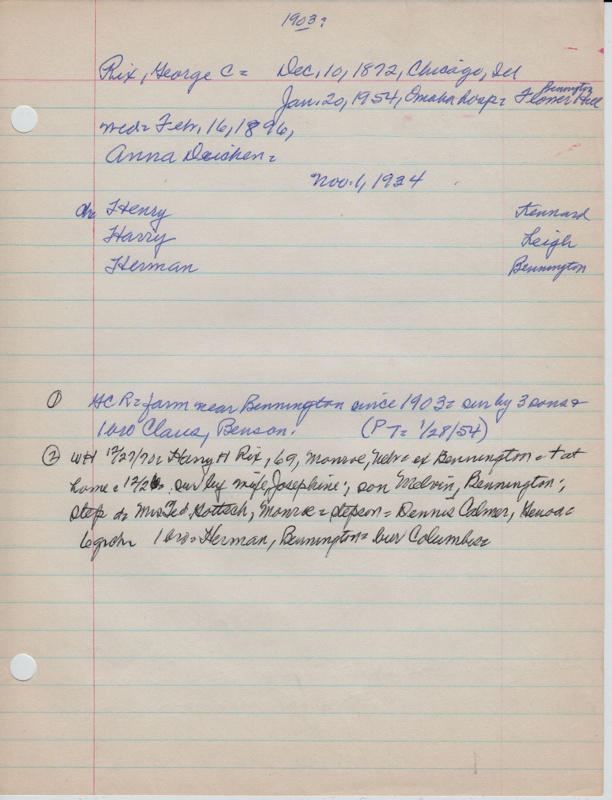 1903:
Rix, George C = Dec. 10, 1872, Chicago, Ill
Bennington
Jan. 20, 1954, Omaha hosp = Flower Hill
med = Feb. 16, 1896,
Anna Deichen =
Nov. 1, 1934
ch Henry Kennard
Harry Leigh
Herman Bennington
① GCR = farm near Bennington since 1903 = sur by 3 sons &
1 bro Claus, Benson. (P T = 1/28/54)
② WH 12/27/70 = Harry H Rix, 69, Monroe, Nebr = ex Bennington = + at
home = 12/26 sur by wife, Josephine; son Melvin, Bennington;
step d = Mrs Ted Hottsch, Monroe = stepson = Dennis Calmer,
6 grch 1 bro = Herman, Bennington = bur Columbus =